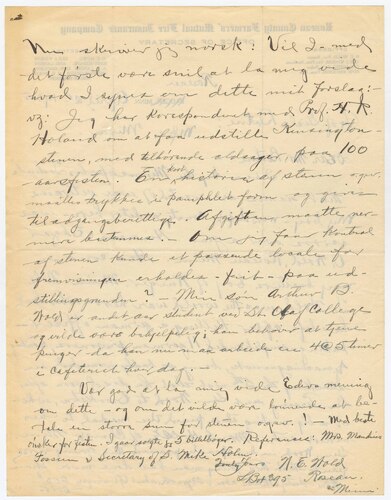 Nu skriver jeg norsk: Vil I med
det første være snil at la mig vide
hvad I synes om dette mit forslag:
vz: Jeg har korrespondert med Prof. H. R.
Holand om at faa udstille Kensington
stenen, med tilhørende oldsager paa 100
aarsfesten. En kort historie af stenen
maatte trykkes i pamphlet form og gives
til adgangsberettige. Afgiften maatte nær-
mere bestemmes. Om jeg faar kontrol
af stenen kunde et passende locale for
fremvisningen erholdes - frit - paa ud-
stillingsgrunden? Min søn Arthur D.
Wold er andet aar student ved St. Olaf College
vilde være behjelpelig; han behøver at tjene
penger da han nu maa arbeide en 4@5 timer
i cafeteriet hver dag. -
Vær god at la mig vide Eders mening
om dette - og om det vilde være at be-
tale en større sum for denne - ogsaa! - Med beste
ønsker for festen. I gaar solgte jeg 5 billetbøger. References: Mrs. Mandius
Fossum & Secretary of D. Mikle Holm.
Truly yours N. E. Wold
Box 295 Roseau
Minn.
Roseau County Farmers Mutual Fire Insurance Company